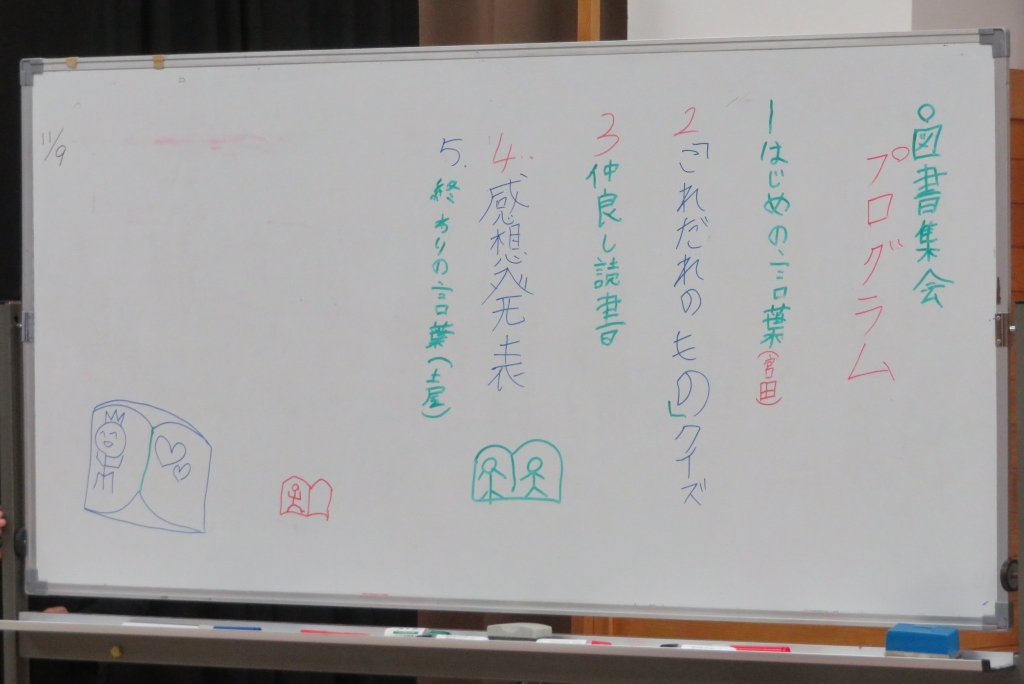 ○図書集会
プログラム
1はじめの言葉(宮田)
2「これだれのもの」クイズ
3仲良し読書
4.感想発表
5.終わりの言葉(土屋)
11/9